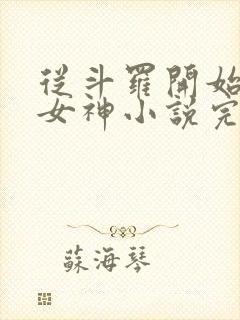 從斗羅開始
女神小説完
蘇海琴